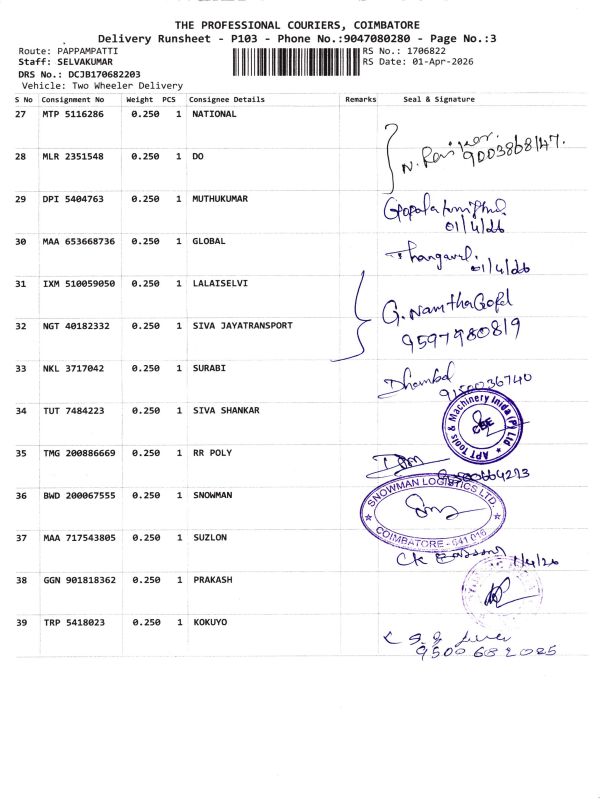 THE PROFESSIONAL COURIERS, COIMBATORE
Delivery Runsheet - P103 - Phone No.:9047080280 - Page No.:3
Route: PAPPAMPATTI RS No.: 1706822
Staff: SELVAKUMAR RS Date: 01-Apr-2026
DRS No.: DCJB170682203
Vehicle: Two Wheeler Delivery
S No Consignment No Weight PCS Consignee Details Remarks Seal & Signature
27 MTP 5116286 0.250 1 NATIONAL
N. 9003868147.
28 MLR 2351548 0.250 1 DO
29 DPI 5404763 0.250 1 MUTHUKUMAR
01/4/26
30 MAA 653668736 0.250 1 GLOBAL
Thangavel. 01/4/26
31 IXM 510059050 0.250 1 LALAISELVI
G. NamthaGopal
32 NGT 40182332 0.250 1 SIVA JAYATRANSPORT
9597980819
33 NKL 3717042 0.250 1 SURABI
9150036740
34 TUT 7484223 0.250 1 SIVA SHANKAR
APT Tools & Machinery Inida (P) Ltd
CBE
35 TMG 200886669 0.250 1 RR POLY
36 BWD 200067555 0.250 1 SNOWMAN
SNOWMAN LOGISTICS LTD.
COIMBATORE - 641 016
37 MAA 717543805 0.250 1 SUZLON
1/4/26
38 GGN 901818362 0.250 1 PRAKASH
39 TRP 5418023 0.250 1 KOKUYO
9500682025